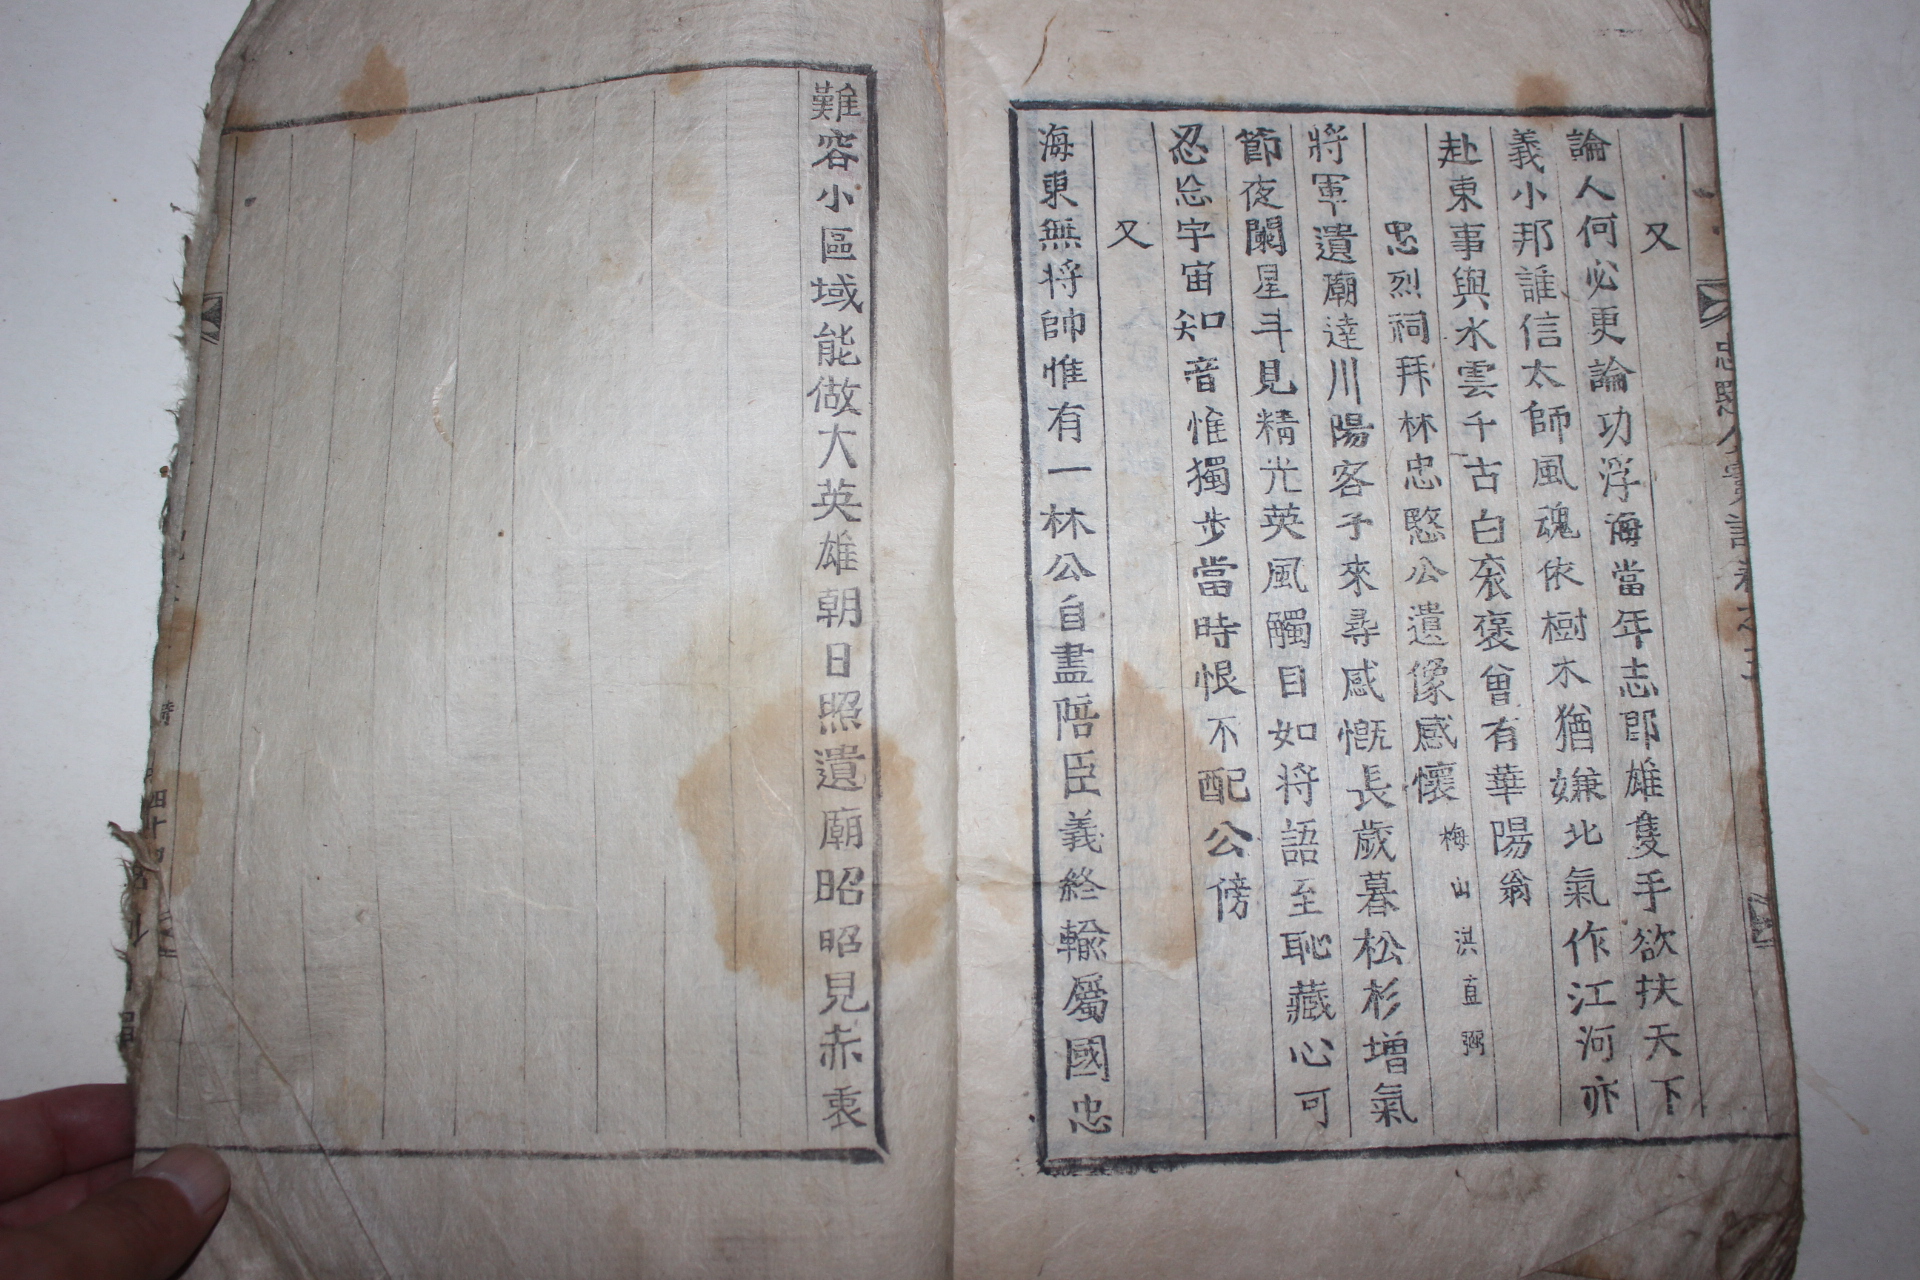 又
論人何必更論功浮海當年志郎雄隻手欲扶天下
義小邦誰信太師風魂依樹木猶嫌北氣作江河亦
赴東事與水雲千古白衮褒曾有華陽翁
忠烈祠拜林忠愍公遺像感懷 梅山洪直弼
將軍遺廟達川陽客子來尋感慨長歲暮松杉增氣
節夜闌星斗見精光英風觸目如将語至恥藏心可
忍忘宇宙知音惟獨步當時恨不配公傍
又
海東無将帥惟有一林公自盡陪臣義終輸屬國忠
難容小區域能做大英雄朝日照遺廟昭昭見赤衷
忠愍公實記卷之五
四十四